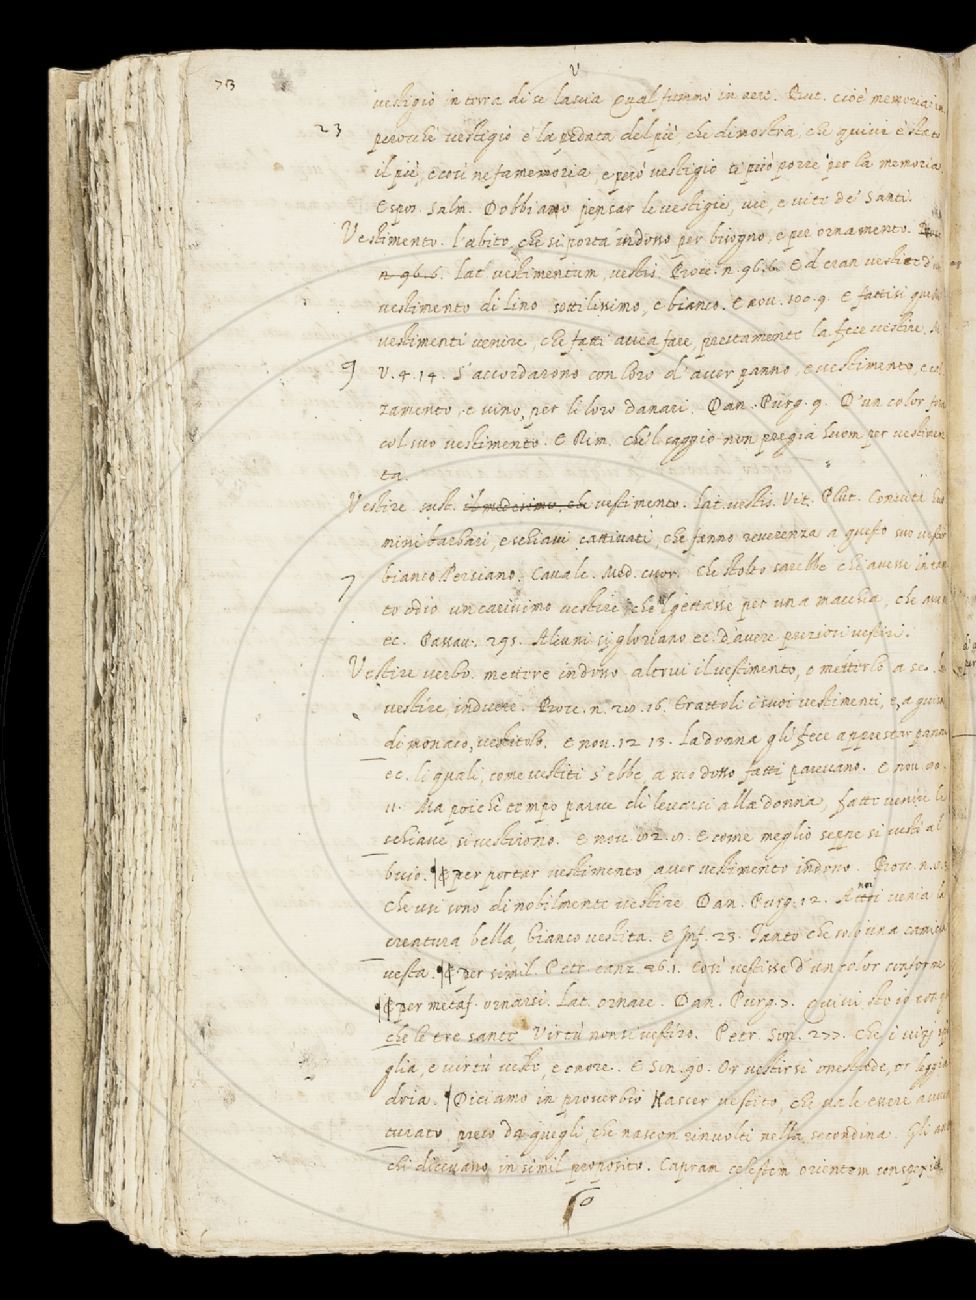 73
V
vestigio in terra di se lascia Qual fummo in aere. But. cioè memoria in
23
perocchè vestigio è la pedata del piè, che dimostra, che quivi è stato
il piè, e così ne fa memoria, e però vestigio si può porre per la memoria
Espos. Salm. Dobbiamo pensar le vestigie, vie, e vite de' Santi.
Vestimento. l'abito, che si porta indosso per bisogno, e per ornamento.
n. 96.6. Lat. vestimentum, vestis. Bocc. n. 96.6. Ed eran vestite d'un
vestimento di lino sottilissimo, e bianco. E nov. 100. 9. E fattisi quelli
vestimenti venire, che fatti avea fare, prestamente la fece vestire.
9
V. 4. 14. S'accordarono con loro d'aver panno, e vestimento, e cal
zamento, e vino, per li loro danari. Dan. Purg. 9. D'un color fora
col suo vestimento. E Rim. che 'l saggio non pregia huom per vestimen
ta.
Vestire sust. il medesimo, che vestimento. Lat. vestis. Vit. Plut. Convitò huo
mini barbari, e schiavi cattivati, che fanno reverenza a questo suo vestir
7
bianco Persiano. Cavalc. Med. cuor. Che stolto sarebbe chi avesse in tan
to odio un carissimo vestire, che 'l gettasse per una macchia, che avesse
ec. Passav. 295. Alcuni si gloriano ec. d'avere preziosi vestiri.
Vestire verbo. mettere indosso altrui il vestimento, o metterlo a se.
vestire, induere. Bocc. n. 20. 16. Trattoli i suoi vestimenti, e, a guisa
di monaco, vestitolo. E nov. 12 13. La donna gli fece apprestar panni
ec. li quali, come vestiti s'ebbe, a suo dosso fatti parevano. E nov.
11. Ma poichè tempo parve di levarsi alla donna, fatte venir le
schiave, si vestirono. E nov. E come meglio seppe si vestì al
buio. ¶ per portar vestimento, aver vestimento indosso. Bocc. n.
che usi sono di nobilmente vestire. Dan. Purg. 12. A noi venia la
creatura bella, bianco vestita. E Inf. 23. Tanto che solo una camicia
vesta. ¶ per simil. Petr. canz. 26. 1. Così vestisse d'un color conforme
¶ per metaf. ornarsi. Lat. ornare. Dan. Purg. 7. Quivi sto io
che le tre sante Virtù non si vestiro. Petr. Son. 277. Che i vizj
glia, e virtù veste, e onore. E Son. 90. Or vestirsi onestade, or leggia
dria. ¶ Diciamo in proverbio Nascer vestito, che vale essere avven
turato, preso da quegli, che nascon rinvolti nella secondina. Gli an
chi dicevano in simil proposito. Capram celestem orientem conspexit.